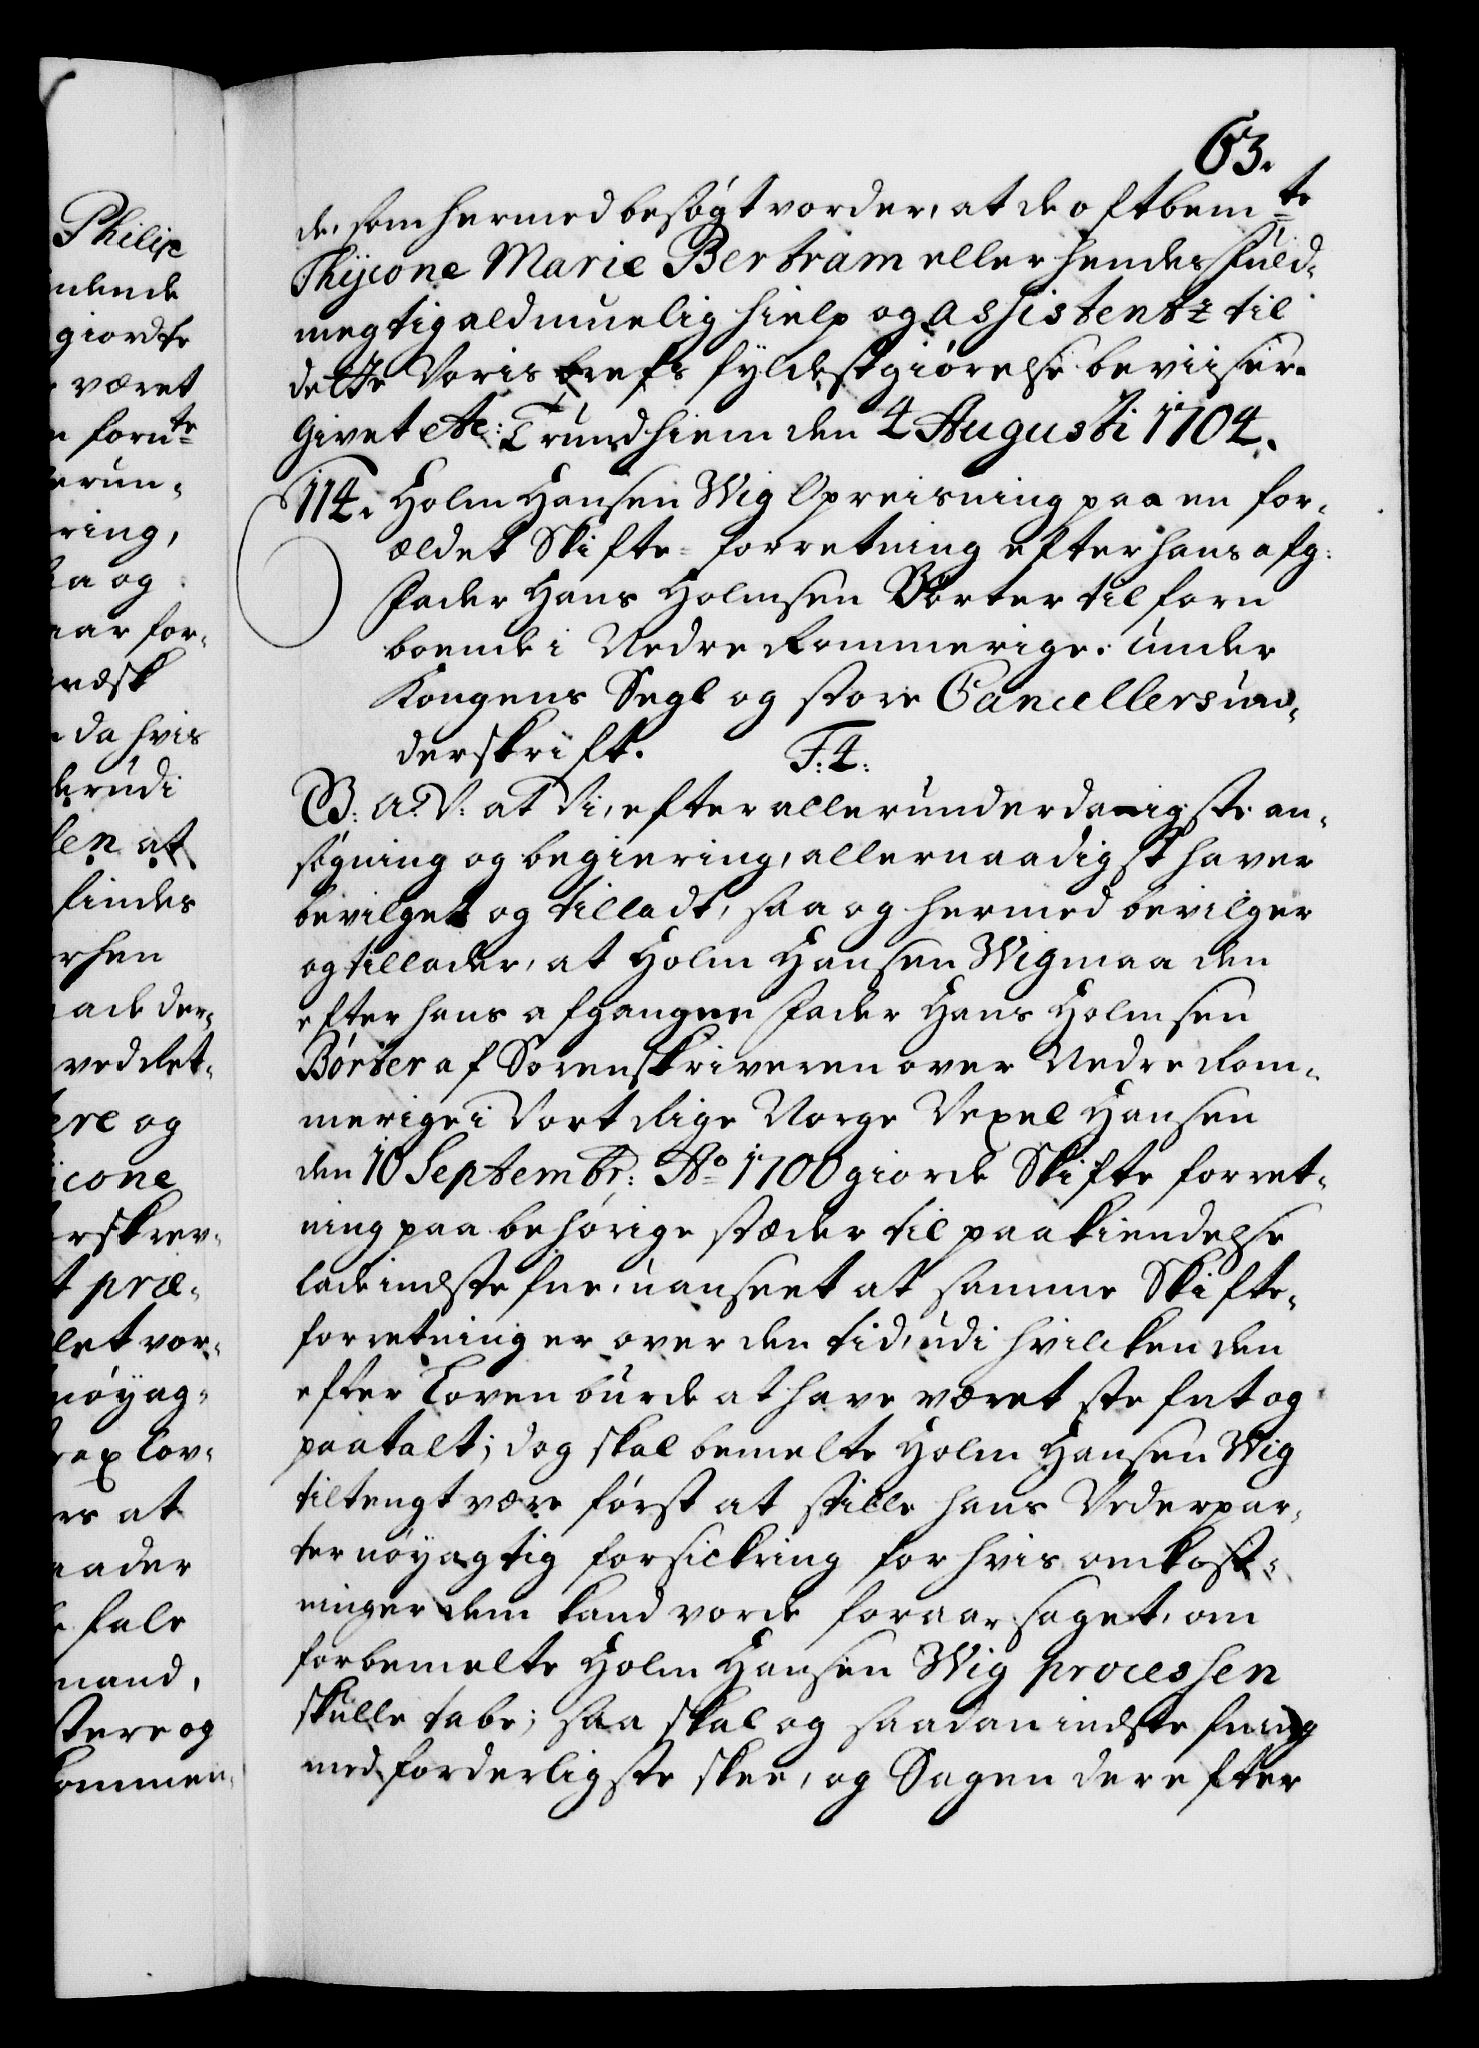 63.
de, som hermed besøgt vorder, at de oftbemte
Thijcone Marie Bertram eller hendes Fuld-
megtig ald muelig hielp og assistentz til
dette Voris brefs fyldestgiørelse beviiser.
Givet etc: Trundhiem den 4 Augusti 1704.
114. Holm Hansen Wig Opreisning paa en for-
ældet Skifte-forretning efter hans afg:
Fader Hans Holmsen Børter til forn
boende i Nedre Rommerige. under
Kongens Segl og store Cancellers un-
derskrift. F: 4:
G: A: V: at Vi, efter allerunderdanigste an-
søgning og begiering, allernaadigst haver
bevilget og tilladt, saa og hermed bevilger
og tillader, at Holm Hansen Wig maa den
efter hans afgangne Fader Hans Holmsen
Børter af Sorenskriveren over Nedre Rom-
merige i Vort Rige Norge Vexel Hansen
den 10 Septembr: Ao 1700 giorde Skifte forret-
ning paa behørige stæder til paakiendelse
lade indstefne, uanseet at samme Skifte-
forretning er over den tid, udi hvilcken den
efter Loven burde at have været stefnt og
paatalt; dog skal bemelte Holm Hansen Wig
tiltengt være først at stille hans Vederpar-
ter nøyagtig forsickring for hvis omkost-
ninger dem kand vorde foraarsaget, om
forbemelte Holm Hansen Wig processen
skulle tabe; saa skal og saadan indstefning
med forderligste skee, og Sagen derefter
Philip
nende
giordte
været
fornte
erun-
ring,
og
aar for-
næsk
da hvis
udi
at
findes
ved det-
og
cone
rskrev-
præ-
let vor-
nøyag-
lov-
at
fale
mand,
og
kommen-